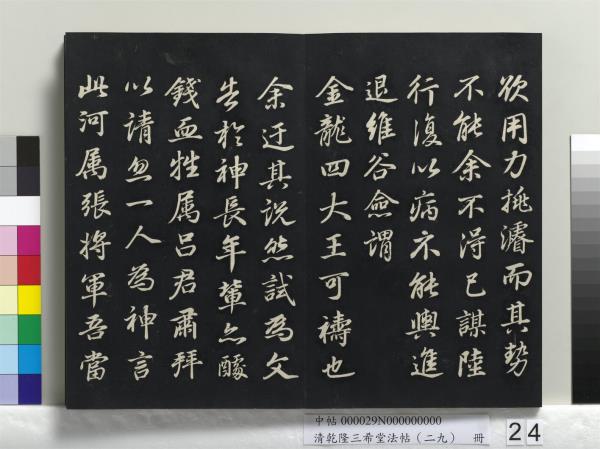 欲用力挑濬而其勢
不能余不得已謀陸
行復以病不能輿進
退維谷僉謂
金龍四大王可禱也
余迂其說然試為文
告於神長年輩亦釀
錢血牲属吕君肅拜
以請忽一人為神言
此河属張將軍吾當
中帖 000029N000000000
清乾隆三希堂法帖（二九） 冊
24